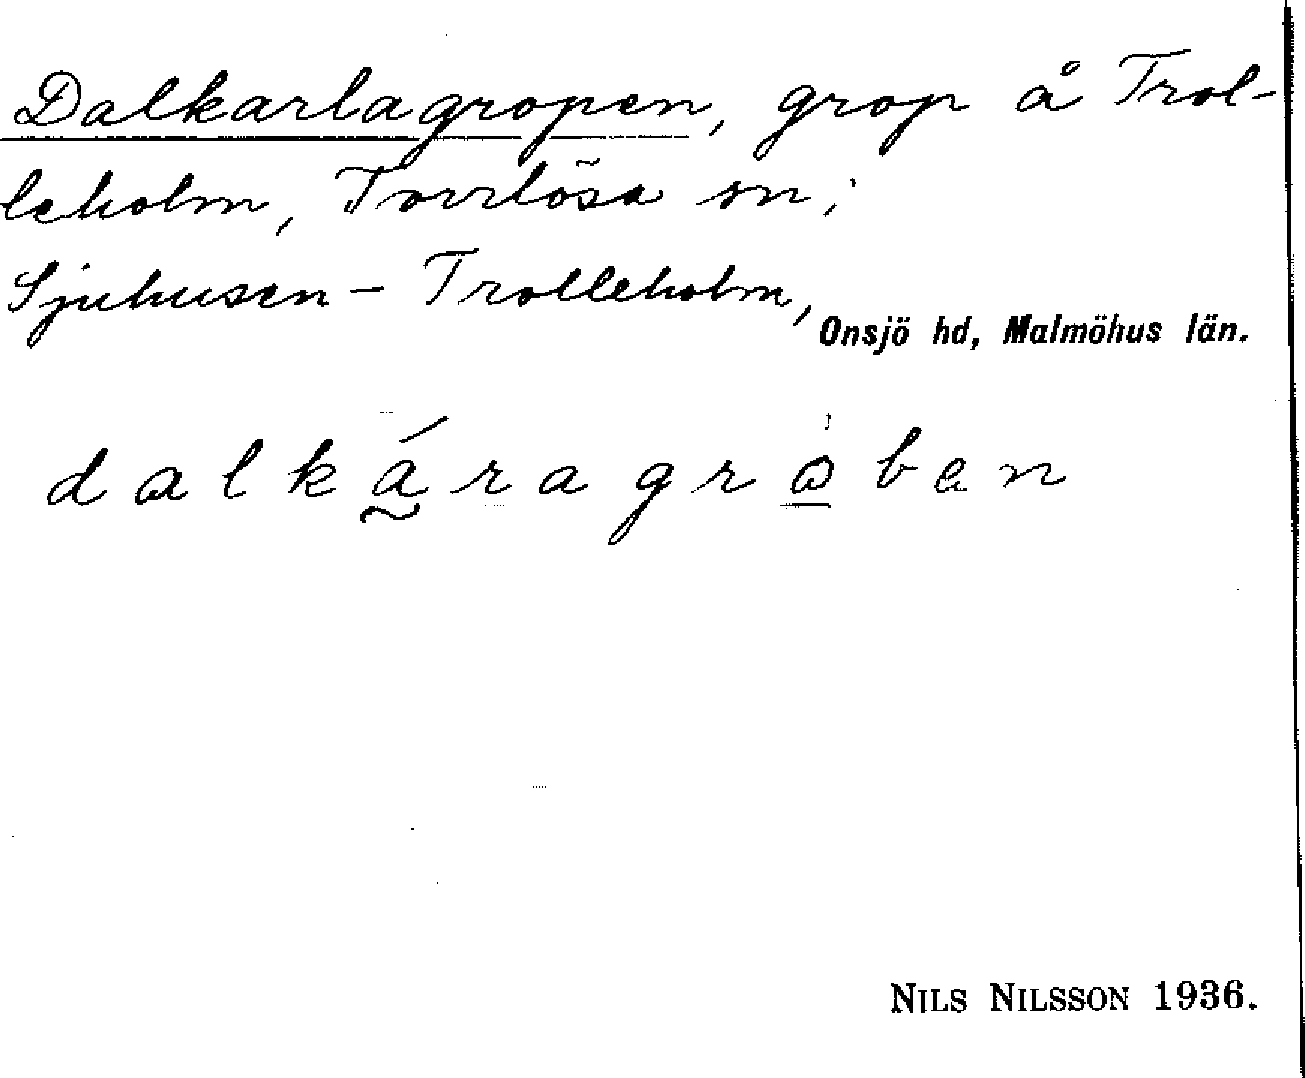 Dalkarlagropen, grop å Trol-
leholm, Torrlösa sn;
Sjuhusen - Trolleholm,
Onsjö hd, Malmöhus län.
dalkáragròben
NILS NILSSON 1936.